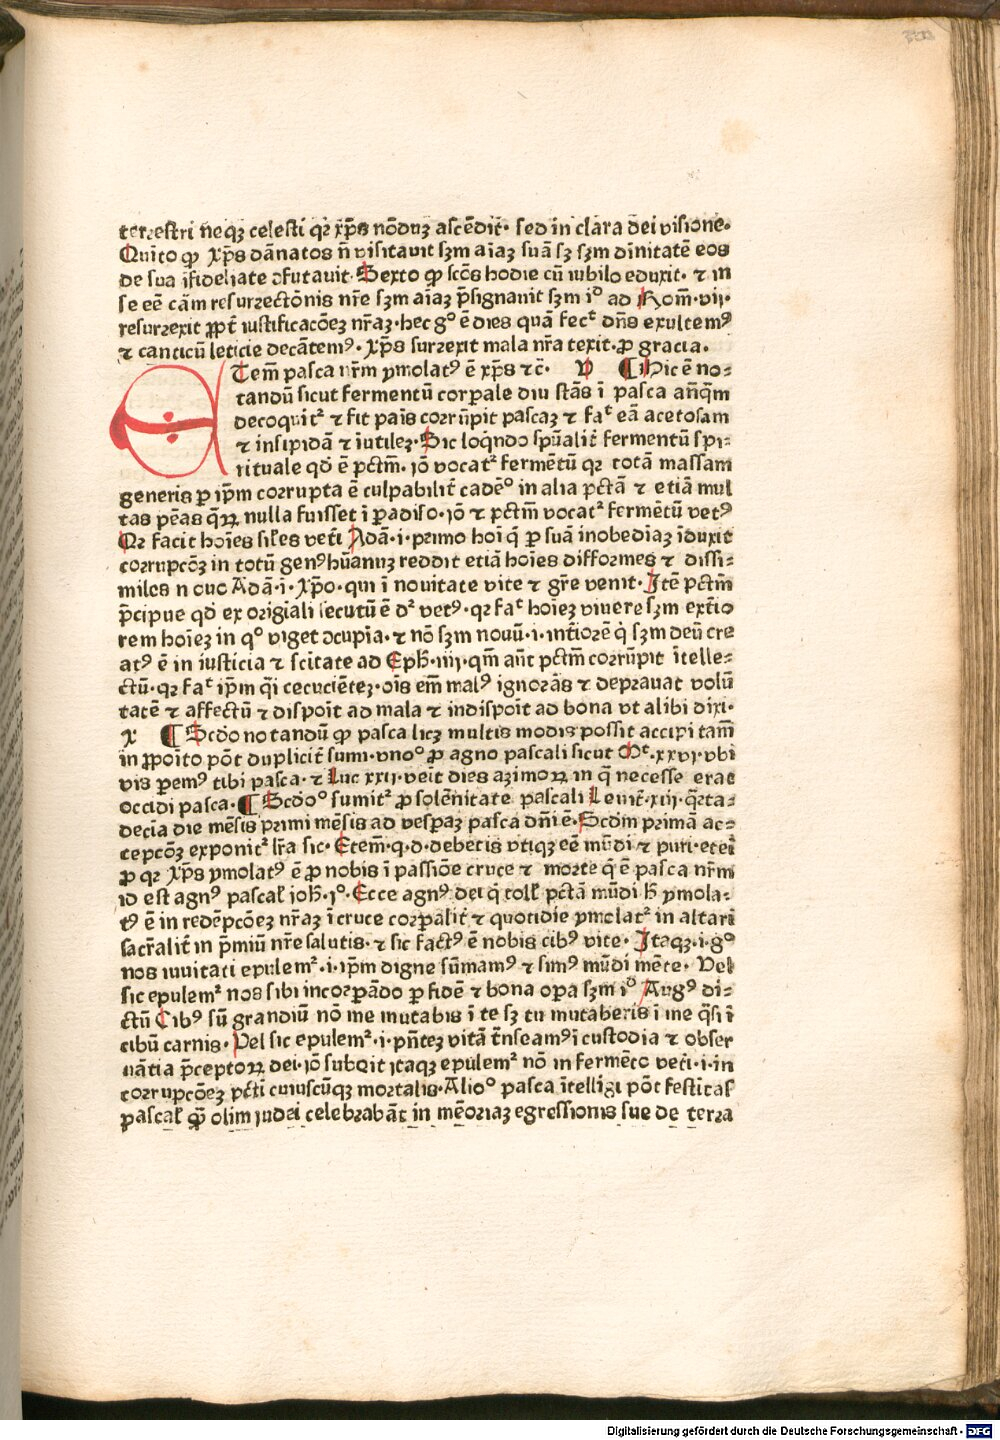 terrestri neqz celesti qr xp̄s nōduz ascēdit· sed in clara dei visione·
Quīto ꝙ xp̄s dānatos n̄ visitauit sꝫm aīaꝫ suā sꝫ sꝫm dīnitatē eos
de sua īfideliate ꝯfutauit· Sexto ꝙ scōs hodie cū iubilo eduxit· ⁊ in
se eē cām resurrectōnis nr̄e sꝫm aīaꝫ p̄signauit sꝫm i⁰ ad Rom̄·vij·
resurrexit ꝓpt̄ iustificacōeꝫ nr̄aꝫ· hec g⁰ ē dies quā fecᵗ dn̄s exultemꝰ
⁊ canticū leticie decātemꝰ· xp̄s surrexit mala nr̄a texit· ꝓ gracia·
ETem̄ pasca nr̄m ymolatꝰ ē xp̄s ⁊c̄· V ¶ Hic ē no⸗
tandū sicut fermentū corꝑale diu stās ī pasca an̄qm̄
decoquitᵗ ⁊ fit pais corrūpit pascaꝫ ⁊ faᵗ eā acetosam
⁊ insipidā ⁊ īutileꝫ· Sic loqn̄do spūalit̄ fermentū spi⸗
rituale qd̄ ē pctm̄· iō vocatᵗ fermētū qr totā massam
generis ꝑ ip̄m corrupta ē culpabilit̄ cadē⁰ in alia pctā ⁊ etiā mul
tas pēas qr̄ꝝ nulla fuisset ī padiso· iō ⁊ pctm̄ vocatᵗ fermētū vetꝰ
Qr facit hoīes siłes vet̄i Adā·i·primo hoī q̄ ꝑ suā inobediāꝫ īduxit
corrupcōeꝫ in totū genꝰ hūannꝫ reddit etiā hoīes difformes ⁊ dissi⸗
miles n ouo Adā·i·xp̄o·qui ī nouitate vite ⁊ gr̄e venit· Itē pctm̄
p̄cipue qd̄ ex origiali secutū ē dᵗ vetꝰ·qr faᵗ hoīeꝫ viuere sꝫm ext̄io
rem hoīeꝫ in q⁰ viget ꝯcupīa·⁊ nō sꝫm nouū·i·int̄iorē q̇ sꝫm deū cre
atꝰ ē in iusticia ⁊ scītate ad Eph̄·iiij·qm̄ aut̄ pctm̄ corrūpit ītelle⸗
ctū·qr faᵗ ip̄m q̄i cecuciēteꝫ·oīs em̄ malꝰ ignorās ⁊ deprauat volū
tatē ⁊ affectū ⁊ dispoīt ad mala ⁊ indispoīt ad bona vt alibi dixi·
X ¶ Scd̄o notandū ꝙ pasca licꝫ multis modis possit accipi tam̄
in ꝓpoīto pōt duplicit̄ sumi·vno⁰ ꝓ agno pascali sicut Mᵗ·xxvj·vbi
vis ꝑemꝰ tibi pasca·⁊ Luc xxij·veīt dies aꝫimoꝝ in q̄ necesse erat
occidi pasca·¶ Scd̄o⁰ sumitᵗ ꝓ solēnitate pascali Leuit̄·xiij·qr̄ta⸗
decīa die mēsis primi mēsis ad vesꝑaꝫ pasca dn̄i ē·Scd̄m primā ac⸗
cepcōꝫ exponitᵗ lr̄a sic· Etem̄·q·d·debetis vtiqꝫ eē mūdi ⁊ puri·etei
ꝓ qr xp̄s ymolatꝰ ē ꝓ nobis ī passiōe cruce ⁊ morte q̄ ē pasca nr̄m
id est agnꝰ pascał ioh̄·i⁰·Ecce agnꝰ dei q̇ tolł pctā mūdi h̄ ymola⸗
tꝰ ē in redēpcōeꝫ nr̄aꝫ ī cruce corꝑalit̄ ⁊ quotidie ymolatᵗ in altari
sacr̄alit̄ in p̄miū nr̄e salutis·⁊ sic factꝰ ē nobis cibꝰ vite· Itaqꝫ·i·g⁰
nos inuitati epulemᵗ·i·ip̄m digne sūmamꝰ ⁊ simꝰ mūdi mēte· Vel
sic epulemᵗ nos sibi incorꝑādo ꝑ fidē ⁊ bona oꝑa sꝫm i⁰ Augꝰ di⸗
ctū Cibꝰ sū grandiū nō me mutabis ī te sꝫ tu mutaberis ī me q̄si ī
cibū carnis· Vel sic epulemᵗ·i·pn̄teꝫ vitā t̄nseamꝰ ī custodia ⁊ obser
uātia p̄ceptoꝝ dei·iō subdit itaqꝫ epulemᵗ nō in fermēto vet̄i·i·in
corrupcōeꝫ pct̄i cuiuscūqꝫ mortalis·Alio⁰ pasca ītelligi pōt festitas
pascał qn̄ olim iudei celebrabāt in mēoriaꝫ egressionis sue de terra
Digitalisierung gefördert durch die Deutsche Forschungsgemeinschaft - DFG